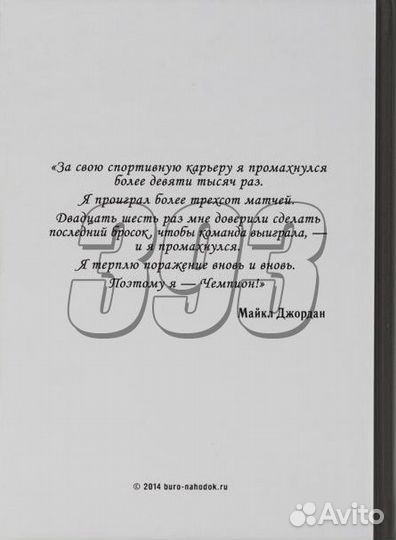 «За свою спортивную карьеру я промахнулся
более девяти тысяч раз.
Я проиграл более трехсот матчей.
Двадцать шесть раз мне доверили сделать
последний бросок, чтобы команда выиграла, —
и я промахнулся.
393
Я терплю поражение вновь и вновь.
Поэтому я — Чемпион!»
Майкл Джордан
© 2014 buro-nahodok.ru
Avito